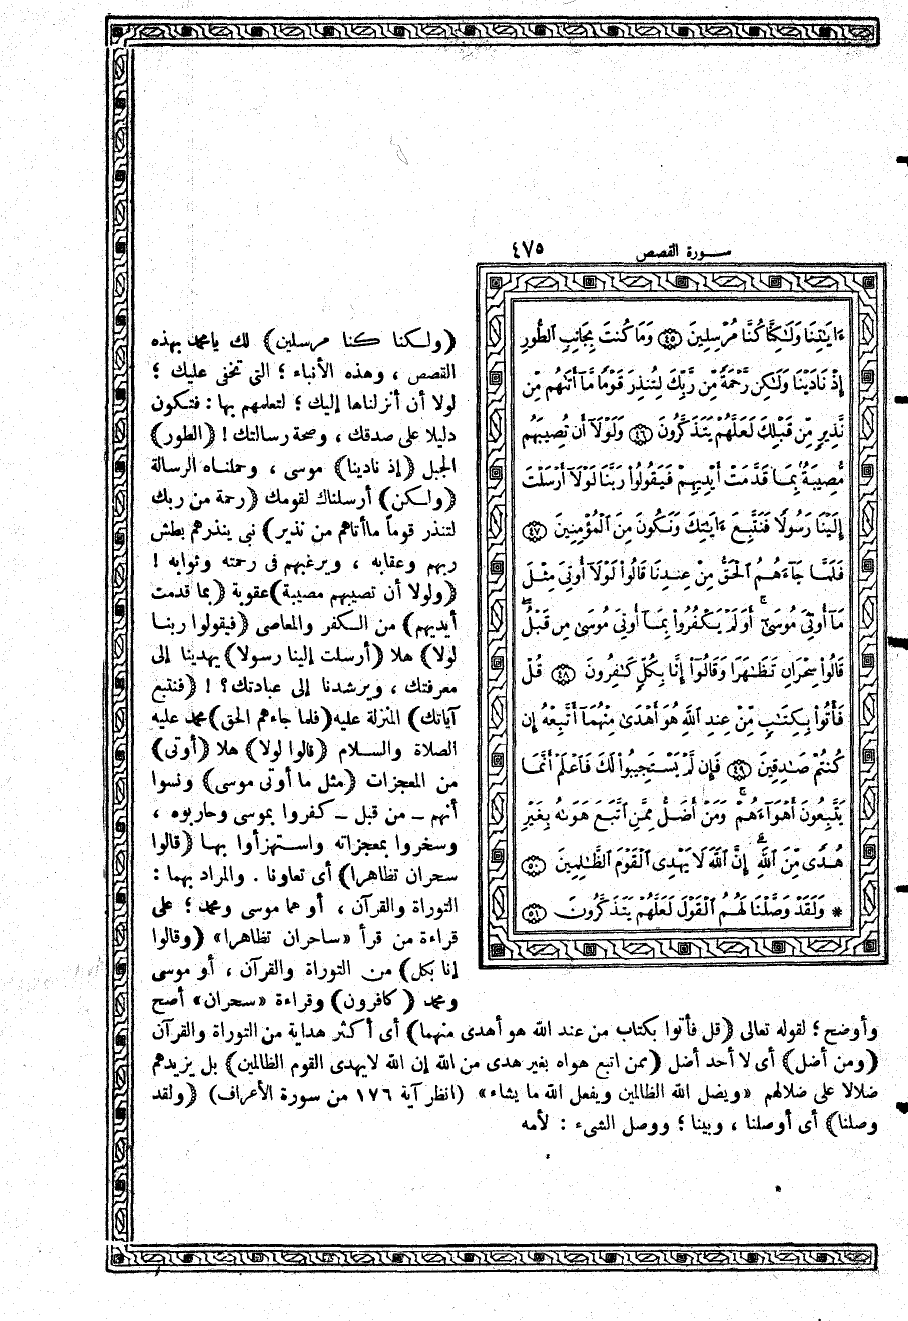 سورة القصص ٤٧٥
ءَايَـٰتِنَا وَلَـٰكِنَّا كُنَّا مُرْسِلِينَ ٤٥ وَمَا كُنتَ بِجَانِبِ ٱلطُّورِ
إِذْ نَادَيْنَا وَلَـٰكِن رَّحْمَةً مِّن رَّبِّكَ لِتُنذِرَ قَوْمًا مَّآ أَتَىٰهُم مِّن
نَّذِيرٍ مِّن قَبْلِكَ لَعَلَّهُمْ يَتَذَكَّرُونَ ٤٦ وَلَوْلَآ أَن تُصِيبَهُم
مُّصِيبَةٌۢ بِمَا قَدَّمَتْ أَيْدِيهِمْ فَيَقُولُوا۟ رَبَّنَا لَوْلَآ أَرْسَلْتَ
إِلَيْنَا رَسُولًا فَنَتَّبِعَ ءَايَـٰتِكَ وَنَكُونَ مِنَ ٱلْمُؤْمِنِينَ ٤٧
فَلَمَّا جَآءَهُمُ ٱلْحَقُّ مِنْ عِندِنَا قَالُوا۟ لَوْلَآ أُوتِىَ مِثْلَ
مَآ أُوتِىَ مُوسَىٰٓ ۚ أَوَلَمْ يَكْفُرُوا۟ بِمَآ أُوتِىَ مُوسَىٰ مِن قَبْلُ ۖ
قَالُوا۟ سِحْرَانِ تَظَـٰهَرَا وَقَالُوٓا۟ إِنَّا بِكُلٍّ كَـٰفِرُونَ ٤٨ قُلْ
فَأْتُوا۟ بِكِتَـٰبٍ مِّنْ عِندِ ٱللَّهِ هُوَ أَهْدَىٰ مِنْهُمَآ أَتَّبِعْهُ إِن
كُنتُمْ صَـٰدِقِينَ ٤٩ فَإِن لَّمْ يَسْتَجِيبُوا۟ لَكَ فَٱعْلَمْ أَنَّمَا
يَتَّبِعُونَ أَهْوَآءَهُمْ ۚ وَمَنْ أَضَلُّ مِمَّنِ ٱتَّبَعَ هَوَىٰهُ بِغَيْرِ
هُدًى مِّنَ ٱللَّهِ ۚ إِنَّ ٱللَّهَ لَا يَهْدِى ٱلْقَوْمَ ٱلظَّـٰلِمِينَ ٥٠
* وَلَقَدْ وَصَّلْنَا لَهُمُ ٱلْقَوْلَ لَعَلَّهُمْ يَتَذَكَّرُونَ ٥١
(ولكنا كنا مرسلين) لك يامحمد بهذه
القصص ، وهذه الأنباء ؛ التى تخفى عليك ؛
لولا أن أنزلناها إليك ؛ لتعلمهم بها : فتكون
دليلا على صدقك ، وصحة رسالتك ! (الطور)
الجبل (إذ نادينا) موسى ، وحملناه الرسالة
(ولكن) أرسلناك لقومك (رحمة من ربك
لتنذر قوماً ماأتاهم من نذير) نبى ينذرهم بطش
ربهم وعقابه ، ويرغبهم فى رحمته وثوابه !
(ولولا أن تصيبهم مصيبة) عقوبة (بما قدمت
أيديهم) من الكفر والمعاصى (فيقولوا ربنا
لولا) هلا (أرسلت إلينا رسولا) يهدينا إلى
معرفتك ، ويرشدنا إلى عبادتك ؟ ! (فنتبع
آياتك) المنزلة عليه (فلما جاءهم الحق) محمد عليه
الصلاة والسلام (قالوا لولا) هلا (أوتى)
من المعجزات (مثل ما أوتى موسى) ونسوا
أنهم ــ من قبل ــ كفروا بموسى وحاربوه ،
وسخروا بمعجزاته واستهزأوا بها (قالوا
سحران تظاهرا) أى تعاونا . والمراد بهما :
التوراة والقرآن ، أو هما موسى ومحمد ؛ على
قراءة من قرأ «ساحران تظاهرا» (وقالوا
إنا بكل) من التوراة والقرآن ، أو موسى
ومحمد (كافرون) وقراءة «سحران» أصح
وأوضح ؛ لقوله تعالى (قل فأتوا بكتاب من عند الله هو أهدى منهما) أى أكثر هداية من التوراة والقرآن
(ومن أضل) أى لا أحد أضل (ممن اتبع هواه بغير هدى من الله إن الله لايهدى القوم الظالمين) بل يزيدهم
ضلالا على ضلالهم «ويضل الله الظالمين ويفعل الله ما يشاء» (انظر آية ١٧٦ من سورة الأعراف) (ولقد
وصلنا) أى أوصلنا ، وبينا ؛ ووصل الشىء : لأمه